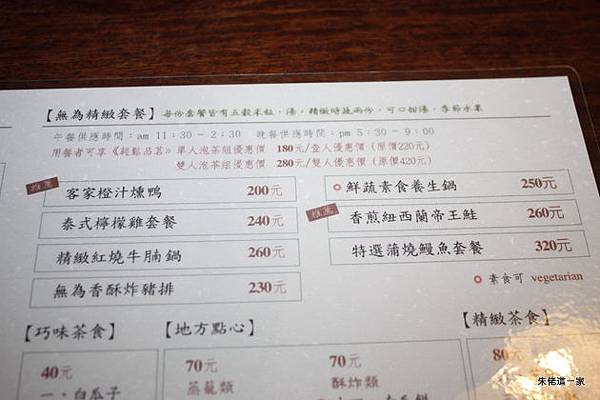 【無為精緻套餐】 每份套餐皆有五穀米飯，湯，精緻時蔬兩份，可口甜湯，季節水果
午餐供應時間：am 11:30－2:30 晚餐供應時間：pm 5:30－9:00
用餐者可享《輕鬆品茗》單人泡茶組優惠價 180元/壹人優惠價（原價220元）
雙人泡茶組優惠價 280元/雙人優惠價（原價420元）
推薦 客家橙汁燻鴨 200元
泰式檸檬雞套餐 240元
精緻紅燒牛腩鍋 260元
無為香酥炸豬排 230元
鮮蔬素食養生鍋 250元
推薦 香煎紐西蘭帝王鮭 260元
特選蒲燒鰻魚套餐 320元
素食可 vegetarian
【巧味茶食】
40元
一、白瓜子
【地方點心】
70元
蒸籠類
70元
酥炸類
【精緻茶食】
80元
朱佬這一家